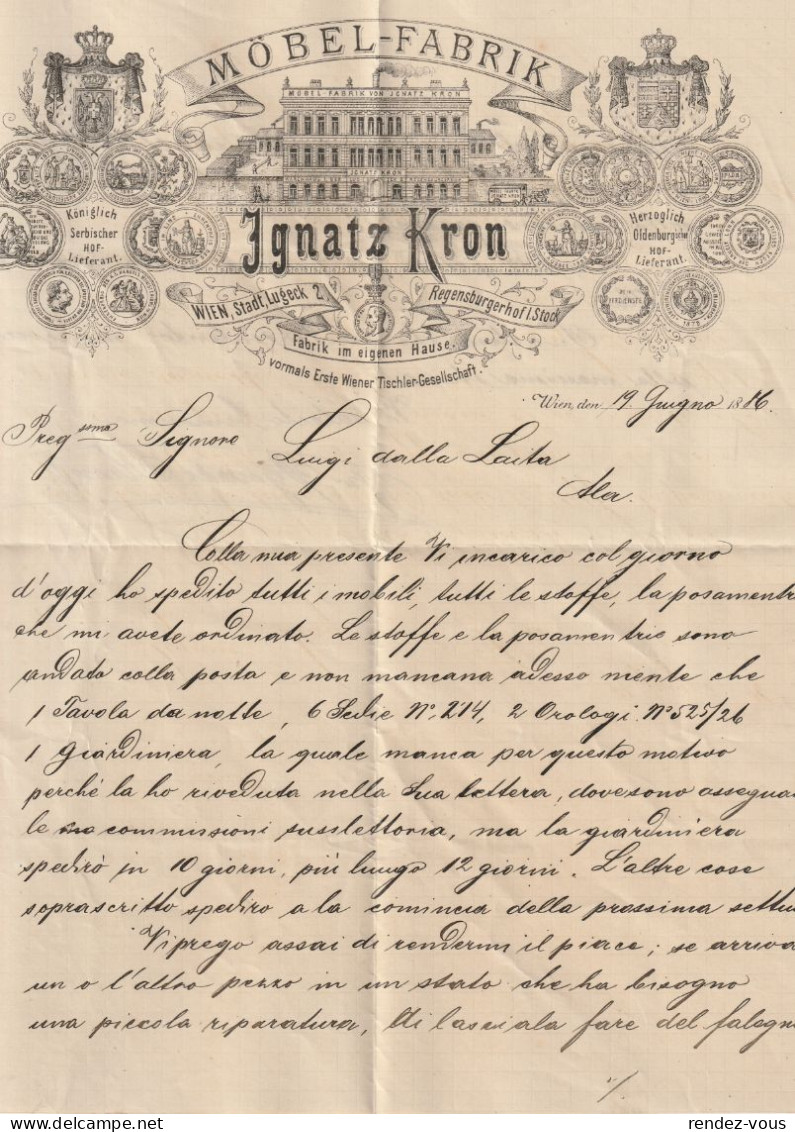 MÖBEL-FABRIK
MÖBEL-FABRIK VON IGNATZ KRON
IGNATZ KRON
Königlich
Serbischer
HOF-
Lieferant.
Ignatz Kron
Herzoglich
Oldenburgischer
HOF-
Lieferant.
WIEN, Stadt, Lugeck 2
Regensburgerhof I. Stock
Fabrik im eigenen Hause.
vormals Erste Wiener Tischler-Gesellschaft.
Wien, den 19 Giugno 1886.
Preg sima Signore Luigi dalla Laita
Ala.
Colla mia presente Vi incarico col giorno
d'oggi ho spedito tutti i mobili, tutti le stoffe, la posamentri
che mi avete ordinato. Le stoffe e la posamentrie sono
andato colla posta e non mancana adesso niente che
1 Tavola da notte, 6 Sedie No. 214, 2 Orologi No 525/26
1 Giardiniera, la quale manca per questo motivo
perché la ho riveduta nella Sua lettera, dove sono assegna
le commissioni susslettoria, ma la giardiniera
spedirò in 10 giorni, più lungo 12 giorni. L'altre cose
soprascritto spediro a la comincia della prossima settim
Vi prego assai di rendermi il piace; se arriva
un o l'altro pezzo in un stato che ha bisogno
una piccola riparatura, di lasciala fare del falegn
./.
rendez-vous